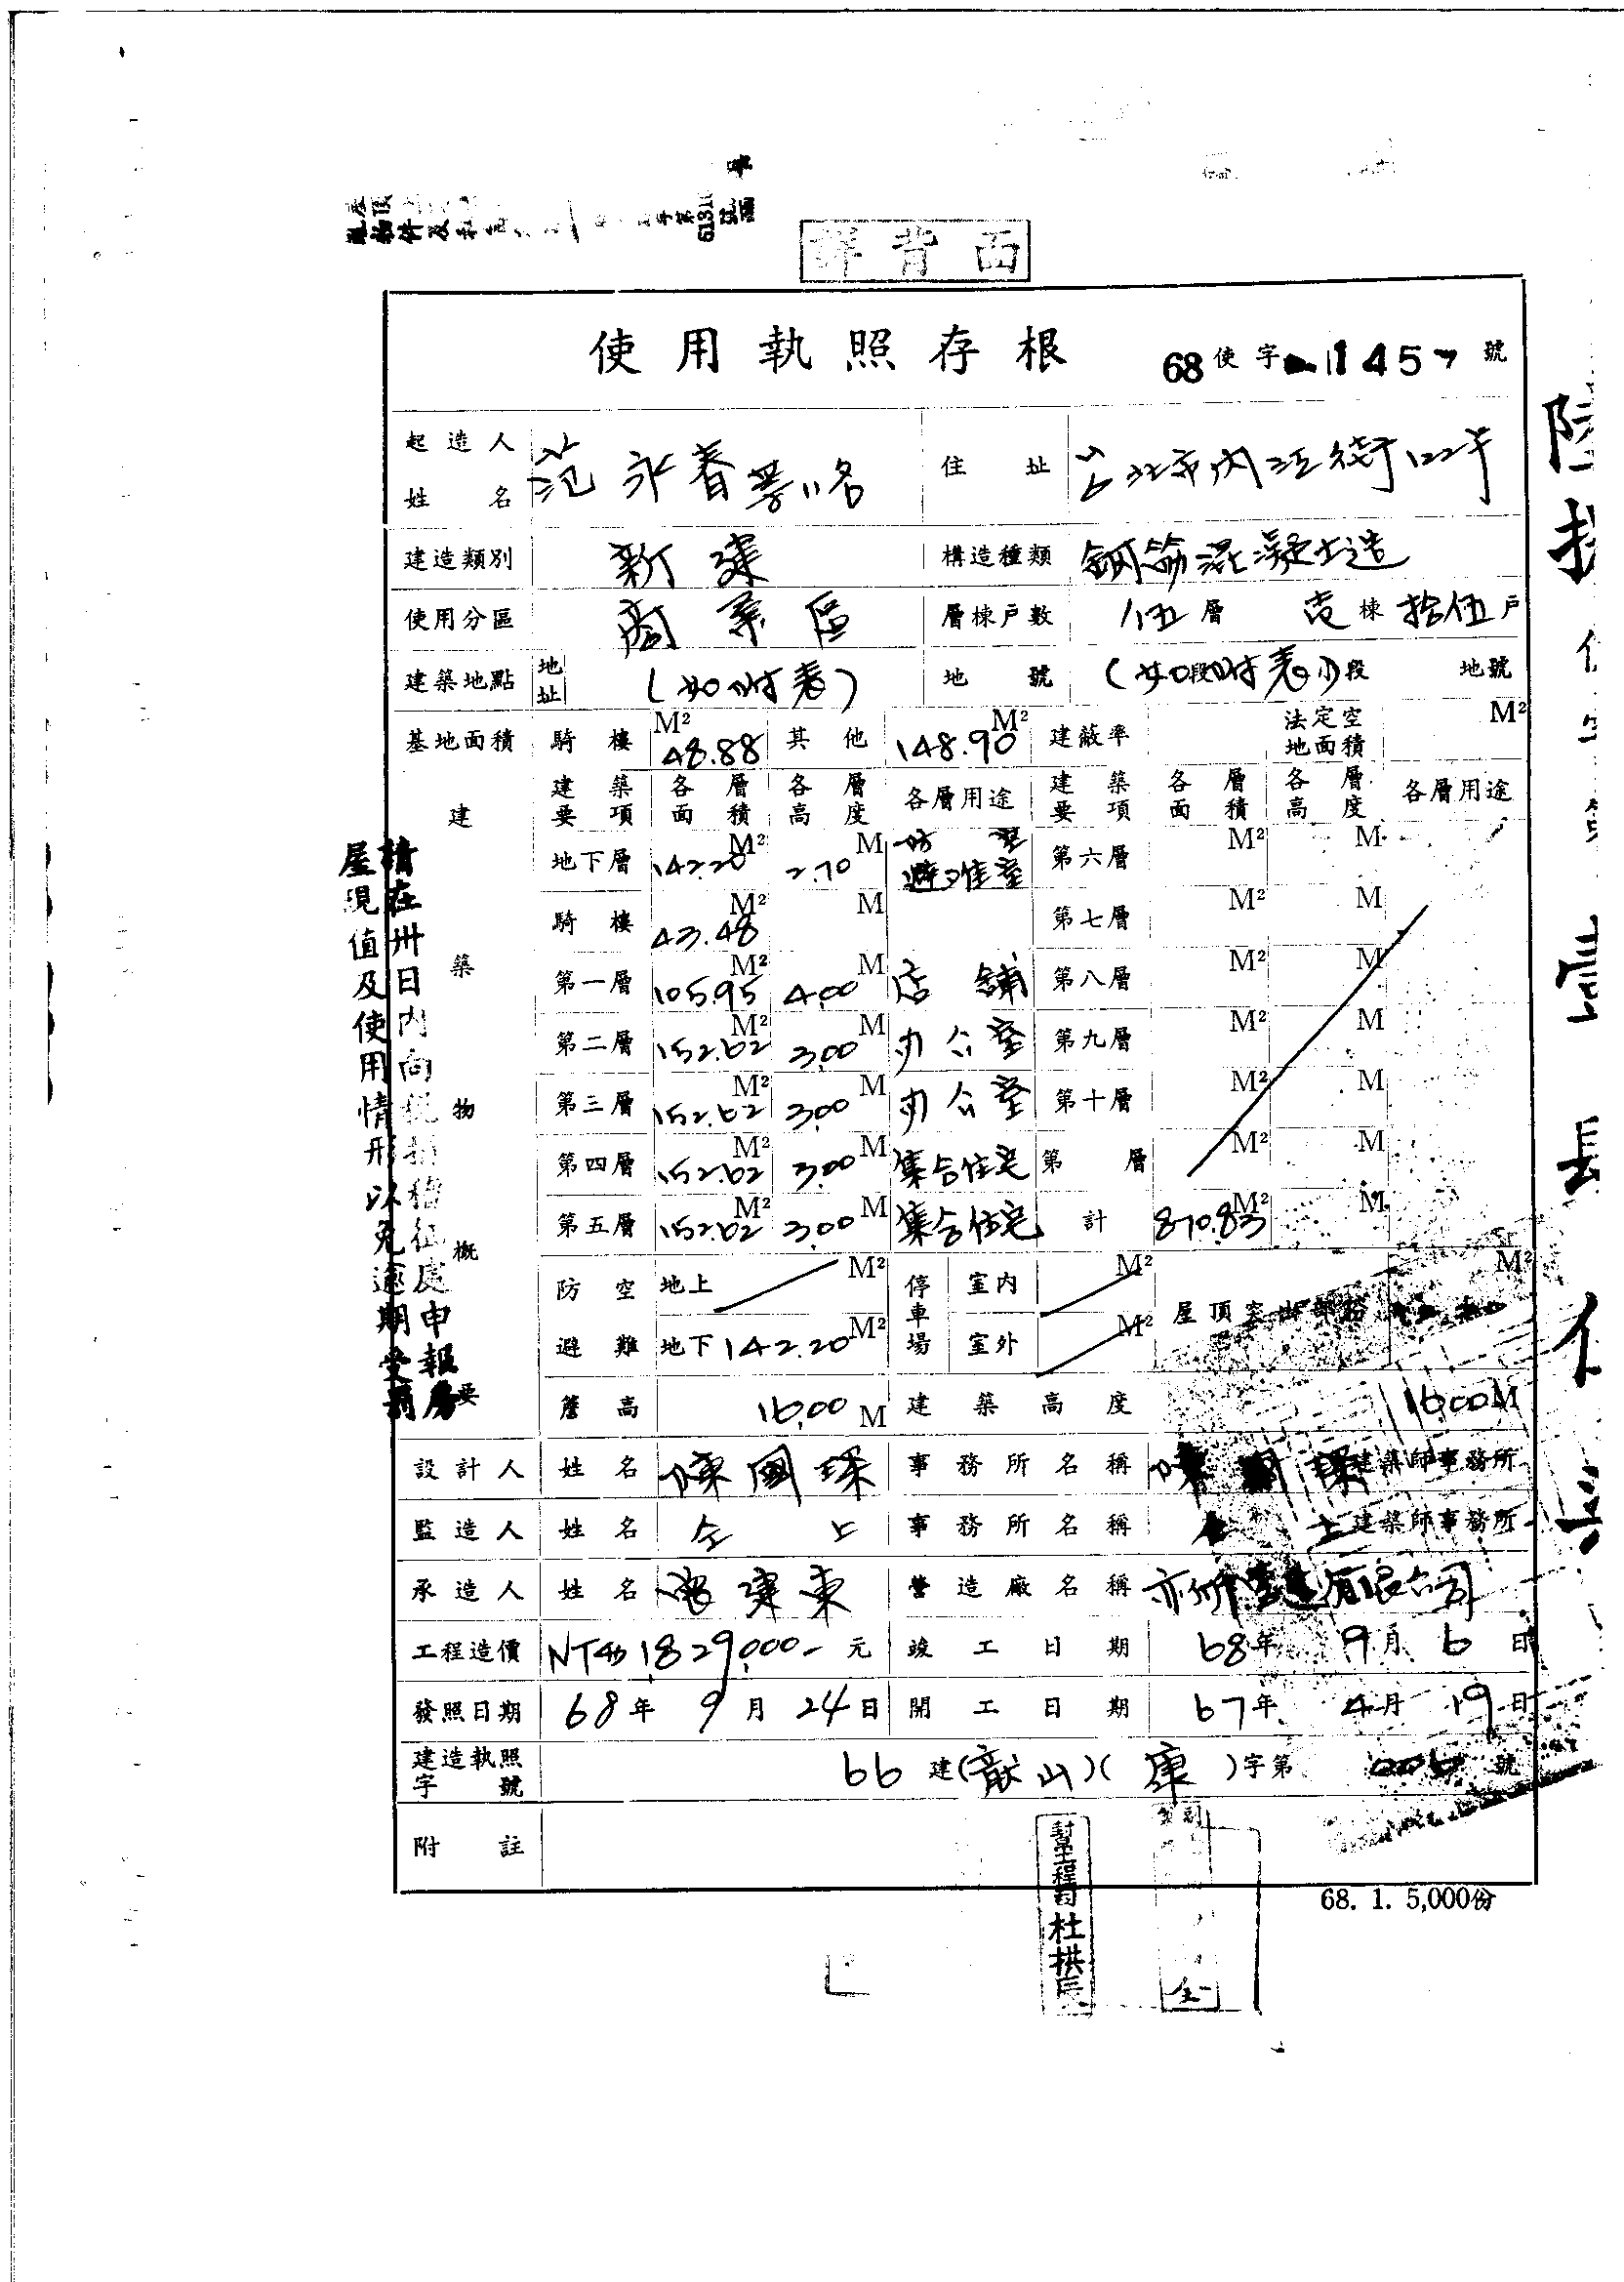 詳背面
使用執照存根 68使字 1457號
起造人姓名 范永春等11名 住址 台北市內江街122号
建造類別 新建 構造種類 鋼筋混凝土造
使用分區 商業區 層棟戶數 伍層 壹棟 拾伍戶
建築地點 地址 (如附表) 地號 (如段附表小)段 地號
基地面積 騎樓 48.88 M² 其他 148.90 M² 建蔽率 法定空地面積 M²
建築物概要
建築要項 各層面積 各層高度 各層用途 建築要項 各層面積 各層高度 各層用途
地下層 142.20 M² 2.70 M 防空避難室 第六層 M² M
騎樓 43.48 M² M 第七層 M² M
第一層 105.95 M² 4.00 M 店舖 第八層 M² M
第二層 152.02 M² 3.00 M 办公室 第九層 M² M
第三層 152.02 M² 3.00 M 办公室 第十層 M² M
第四層 152.02 M² 3.00 M 集合住宅 第 層 M² M
第五層 152.02 M² 3.00 M 集合住宅 計 870.83 M² M
防空避難 地上 M² 停車場 室內 M² 屋頂突出部份 M²
地下 142.20 M² 室外 M²
簷高 16.00 M 建築高度 16.00 M
設計人 姓名 陳國琛 事務所名稱 陳國琛建築師事務所
監造人 姓名 仝上 事務所名稱 仝上建築師事務所
承造人 姓名 建東 營造廠名稱 營造有限公司
工程造價 NT$1,829,000- 元 竣工日期 68年9月6日
發照日期 68年9月24日 開工日期 67年4月19日
建造執照字號 66建( 山)(康)字第006號
附註
68. 1. 5,000份
請在卅日內向稅捐稽征處申報房
屋現值及使用情形以免逾期受罰
工程司杜拱辰